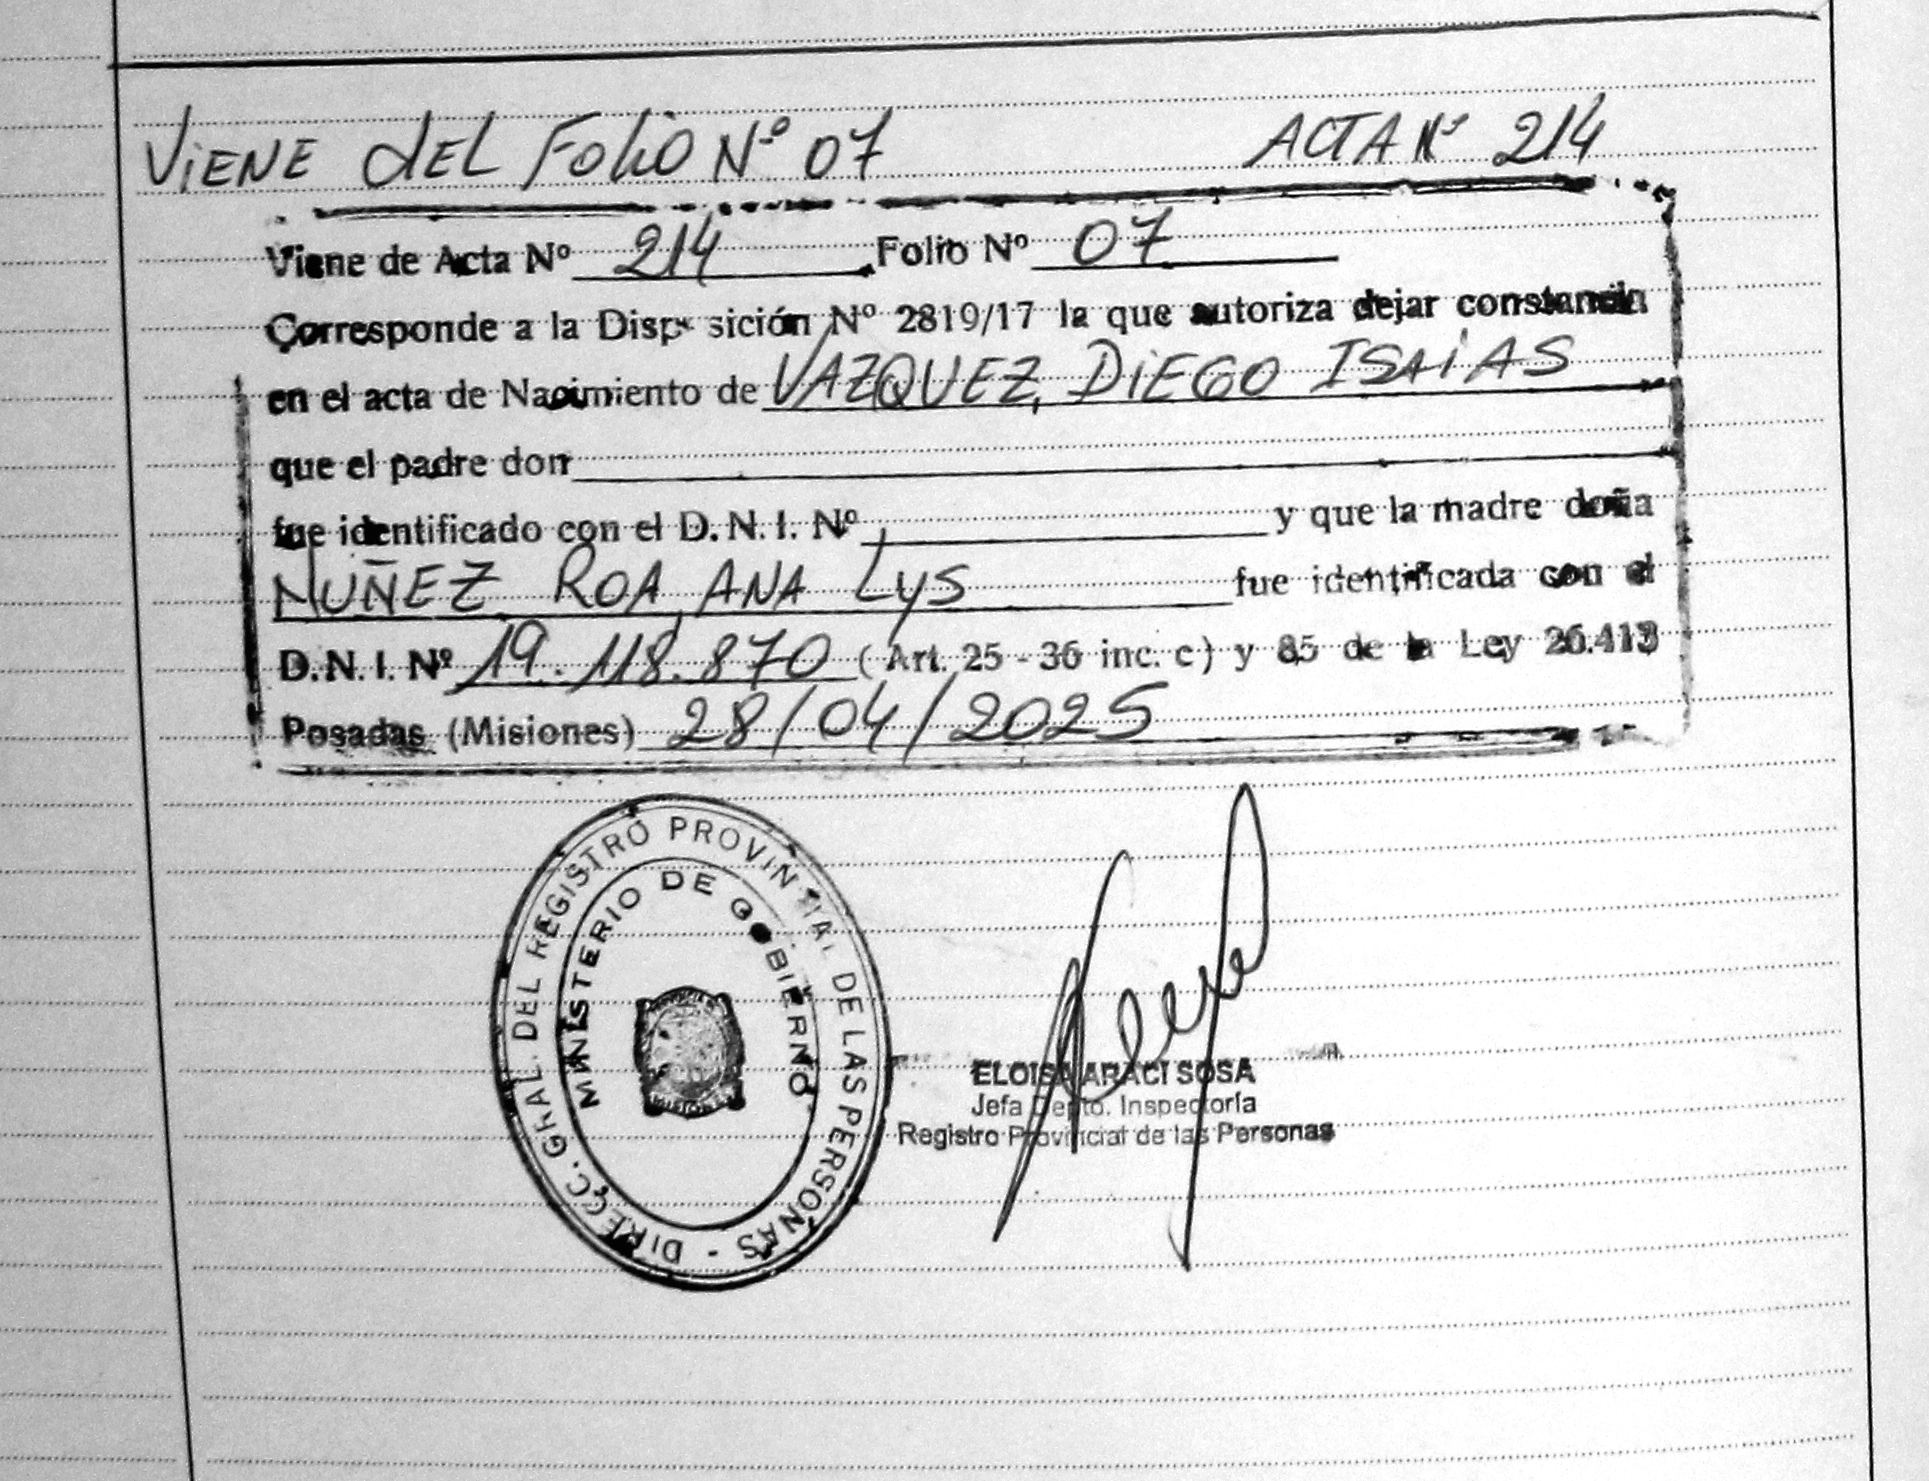 VIENE DEL FOLIO Nº 07 ACTA Nº 214
Viene de Acta Nº 214 Folio Nº 07
Corresponde a la Disposición Nº 2819/17 la que autoriza dejar constancia
en el acta de Nacimiento de VAZQUEZ, DIEGO ISAIAS
que el padre don
fue identificado con el D. N. I. Nº y que la madre doña
NUÑEZ ROA, ANA LYS fue identificada con el
D. N. I. Nº 19.118.870 ( Art. 25 - 36 inc. c ) y 85 de la Ley 26.413
Posadas (Misiones) 28/04/2025
DIRECC. GRAL. DEL REGISTRO PROVINCIAL DE LAS PERSONAS -
MINISTERIO DE GOBIERNO
ELOISA ARACI SOSA
Jefa Depto. Inspectoría
Registro Provincial de las Personas